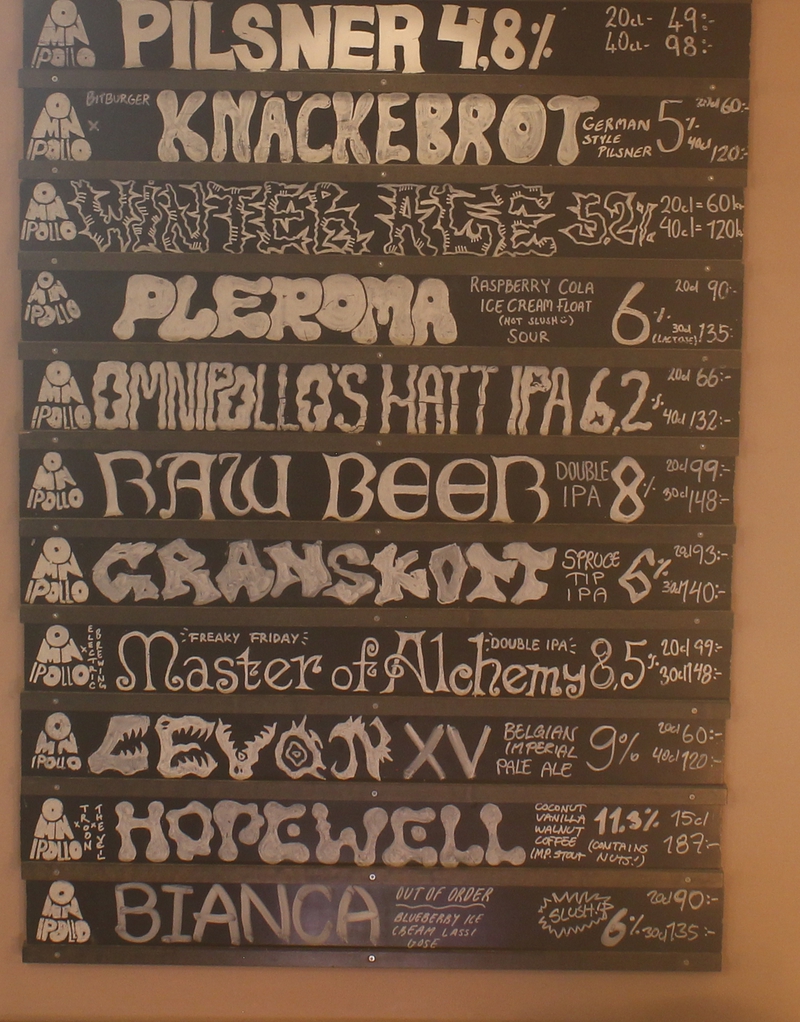 OMNIPOLLO PILSNER 4,8% 20cl- 49:-
40cl- 98:-
OMNIPOLLO x BITBURGER KNÄCKEBROT GERMAN STYLE PILSNER 5%
60:-
40cl 120:-
OMNIPOLLO WINTER ALE 5,2% 20cl = 60kr
40cl = 120kr
OMNIPOLLO PLEROMA RASPBERRY COLA
ICE CREAM FLOAT
(NOT SLUSH :)
SOUR
6% (LACTOSE)
20cl 90:-
30cl 135:-
OMNIPOLLO OMNIPOLLO'S HATT IPA 6,2% 20cl 66:-
40cl 132:-
OMNIPOLLO RAW BEER DOUBLE
IPA
8% 20cl 99:-
30cl 148:-
OMNIPOLLO GRANSKOTT SPRUCE
TIP
IPA
6% 20cl 93:-
30cl 140:-
OMNIPOLLO x ELECTRIC BREWING
FREAKY FRIDAY
Master of Alchemy DOUBLE IPA 8,5% 20cl 99:-
30cl 148:-
OMNIPOLLO XV BELGIAN
IMPERIAL
PALE ALE
9% 20cl 60:-
40cl 120:-
OMNIPOLLO x TROON x THE VEIL
HOPEWELL COCONUT
VANILLA
WALNUT
COFFEE
IMP. STOUT
11.3% (CONTAINS
NUTS!)
15cl
187:-
OMNIPOLLO BIANCA OUT OF ORDER
BLUEBERRY ICE
CREAM LASSI
GOSE
SLUSH!
6% 20cl 90:-
30cl 135:-